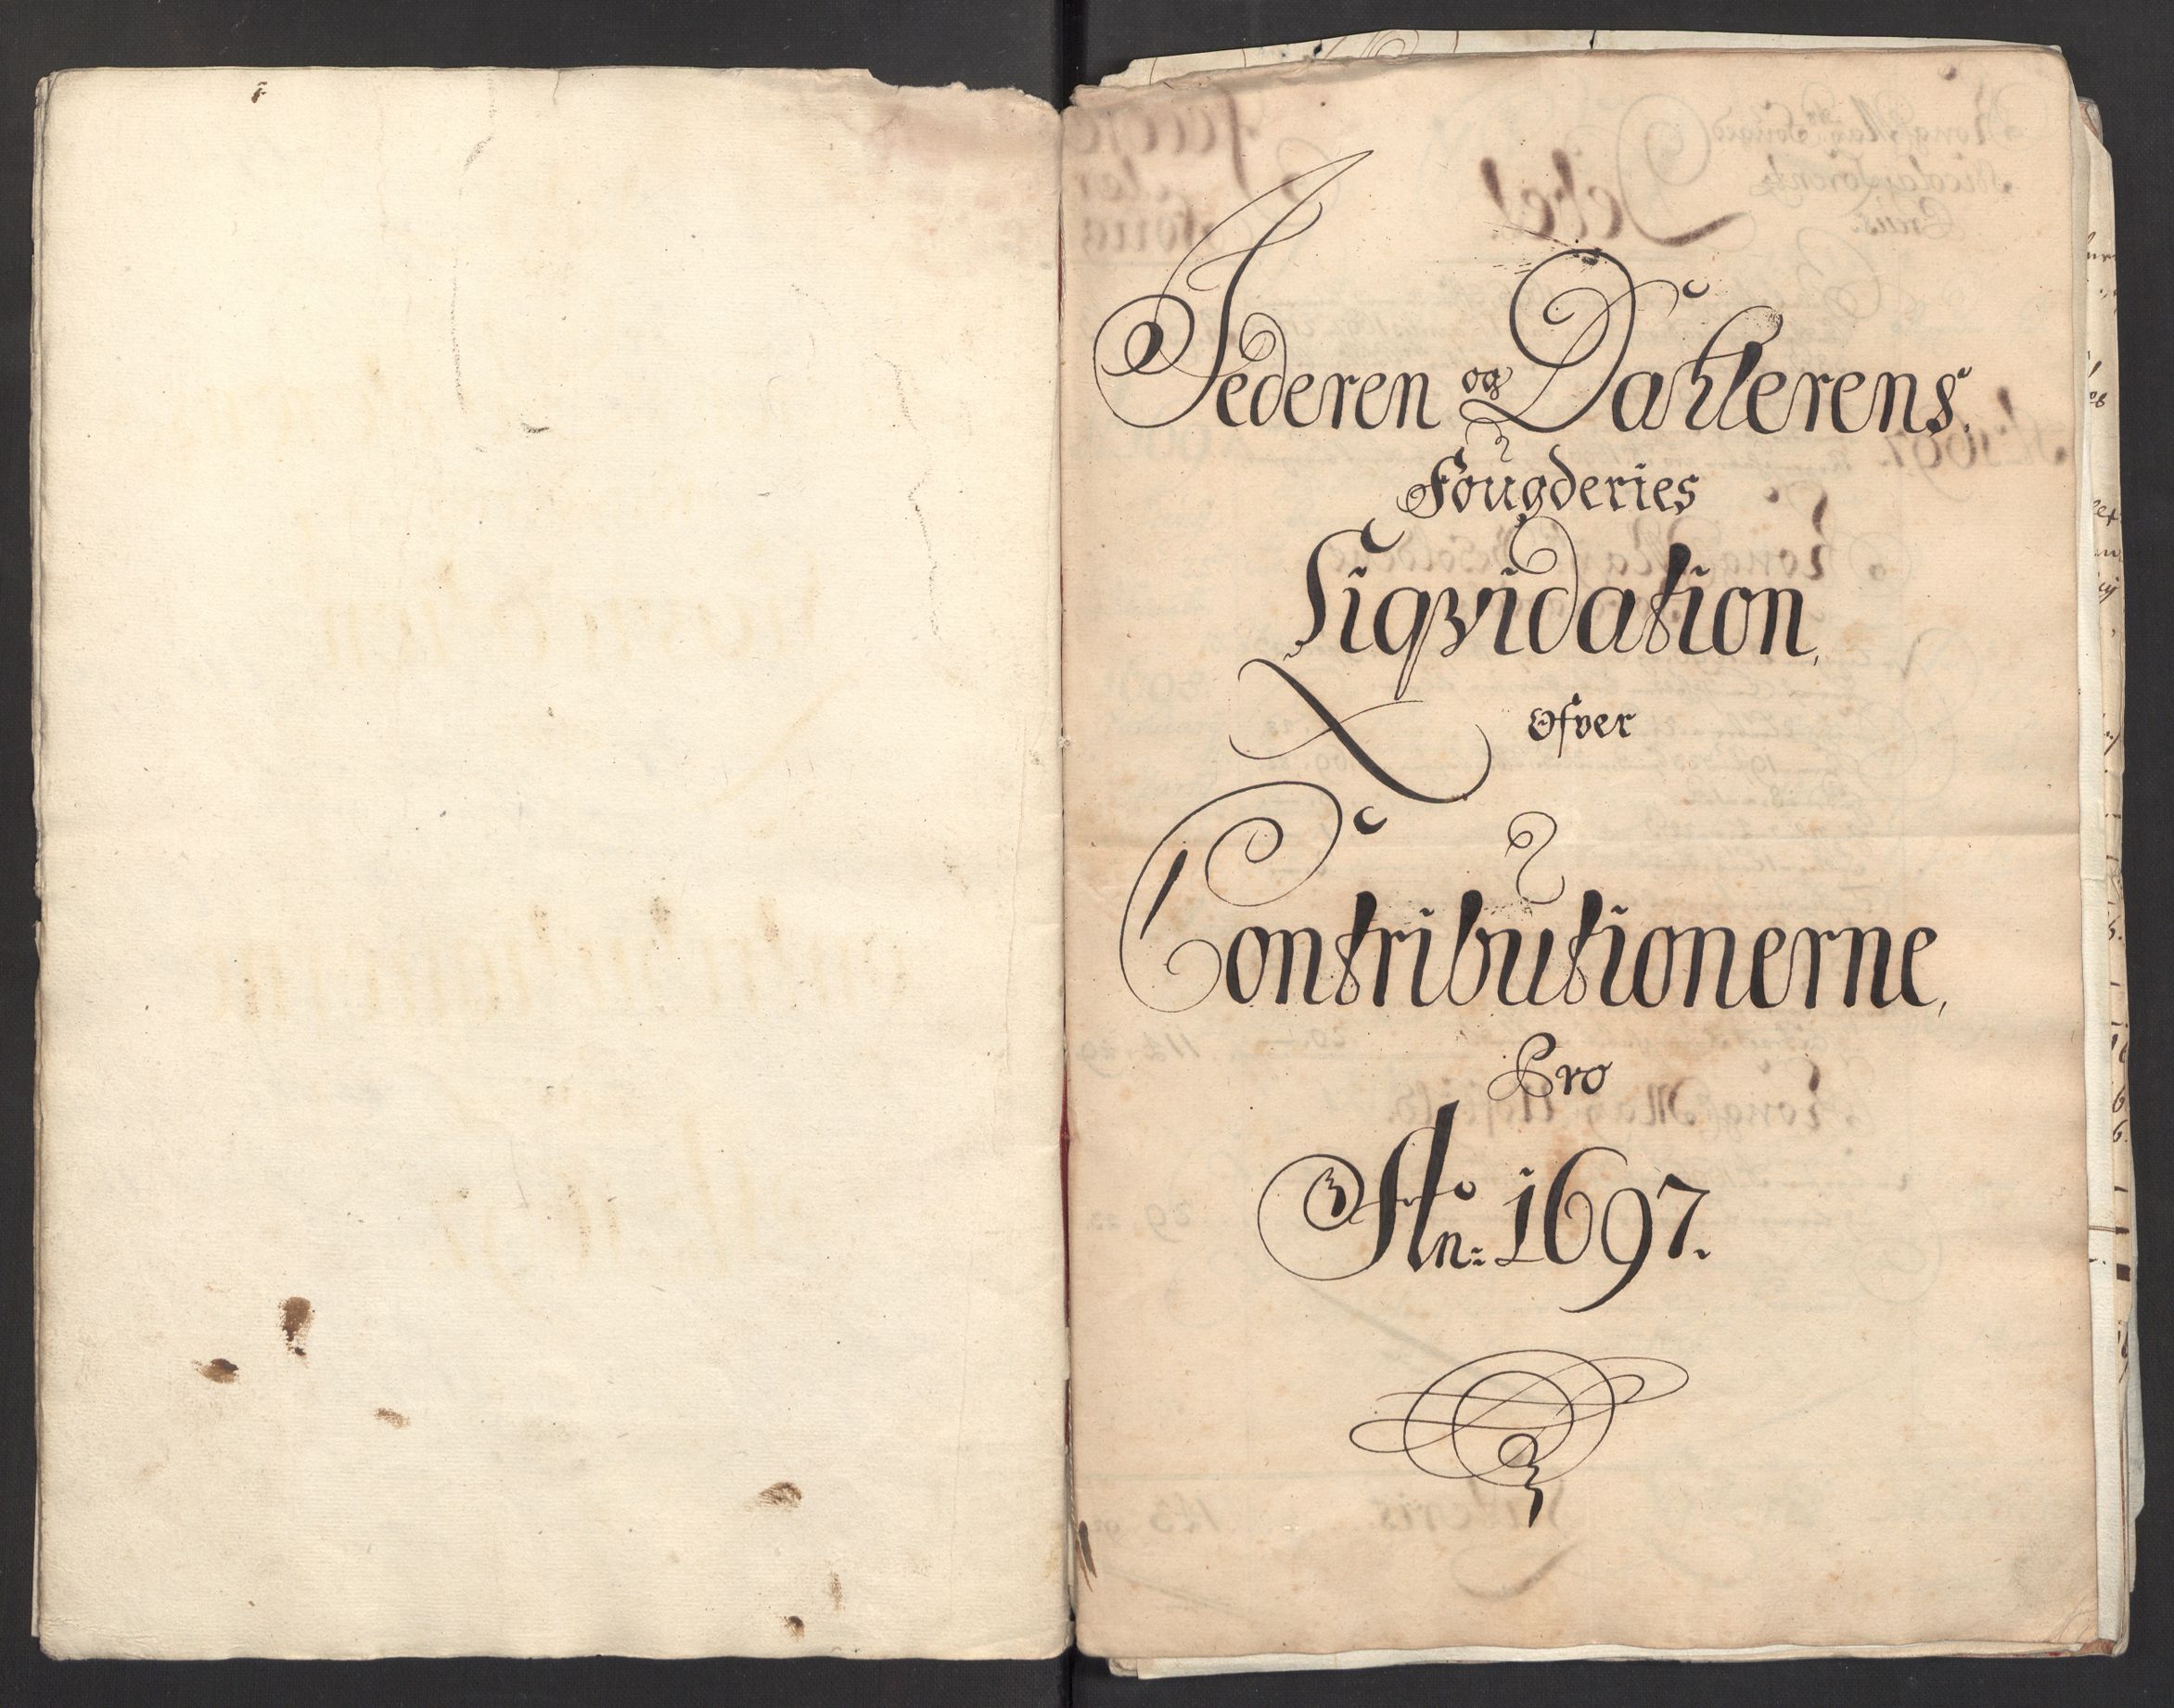 Jederen og Dahlerens
Fougderies
Liqvidation,
Ofver
Contributionerne,
Pro
An̄o: 1697.